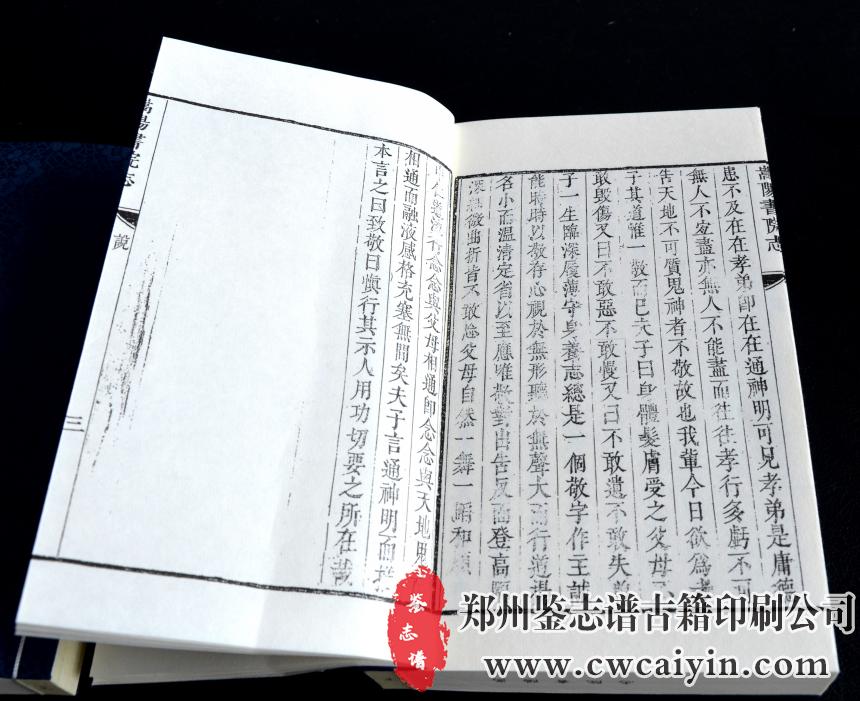 嵩陽書院志
患不及在在孝弟卽在在通神明可見孝弟是庸德
無人不宜盡亦無人不能盡而往往孝行多虧不可
告天地不可質鬼神者不敬故也我輩今日欲爲孝
子其道惟一敬而已夫子曰身體髮膚受之父母不
敢毀傷又曰不敢惡不敢慢又曰不敢遺不敢失曾
子一生臨深履薄守身養志總是一個敬字作主誠
能時時以敬存心視於無形聽於無聲大而行道揚
名小而溫凊定省以至應唯敬對出告反面登高臨
深纖微曲折皆不敢忘父母自然一舞一蹈和順
念念與父母相通卽念念與天地
相通而融液感格充塞無間矣夫子言通神明而
本言之曰致敬曰愼行其示人用功切要之所在哉
嵩陽書院志
說
三
鉴志谱
郑州鉴志谱古籍印刷公司
www.cwcaiyin.com